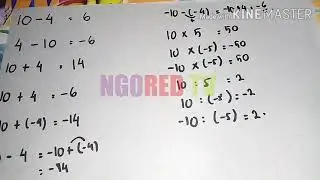 10 - 4 = 6
4 - 10 = -6
10 + 4 = 14
10 + 4 = -6
10 + (-4) = -14
- 4 = -10 + (-4)
= -14
-10 - (-4) = -10 + 4 = -6
10 × 5 = 50
10 × (-5) = -50
-10 × (-5) = 50
10 : 5 = 2
10 : (-5) = -2
-10 : (-5) = 2
NGORED TV
Made With
KINEMASTER